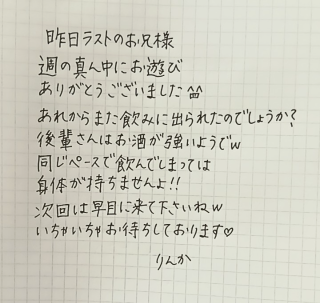 昨日ラストのお兄様
週の真ん中にお遊び
ありがとうございました^^
あれからまた飲みに出られたのでしょうか?
後輩さんはお酒が強いようでw
同じペースで飲んでしまっては
身体が持ちませんよ!!
次回は早目に来て下さいねw
いちゃいちゃお待ちしております♡
りんか